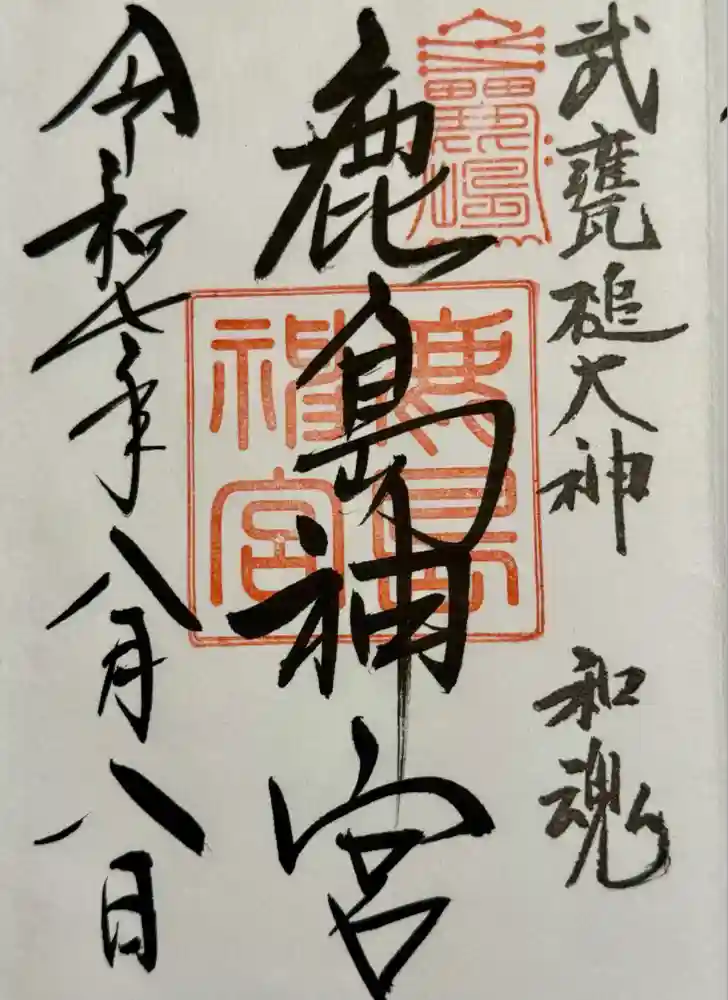 武甕槌大神 和魂
鹿島神宮
鹿島
神宮
令和七年八月八日